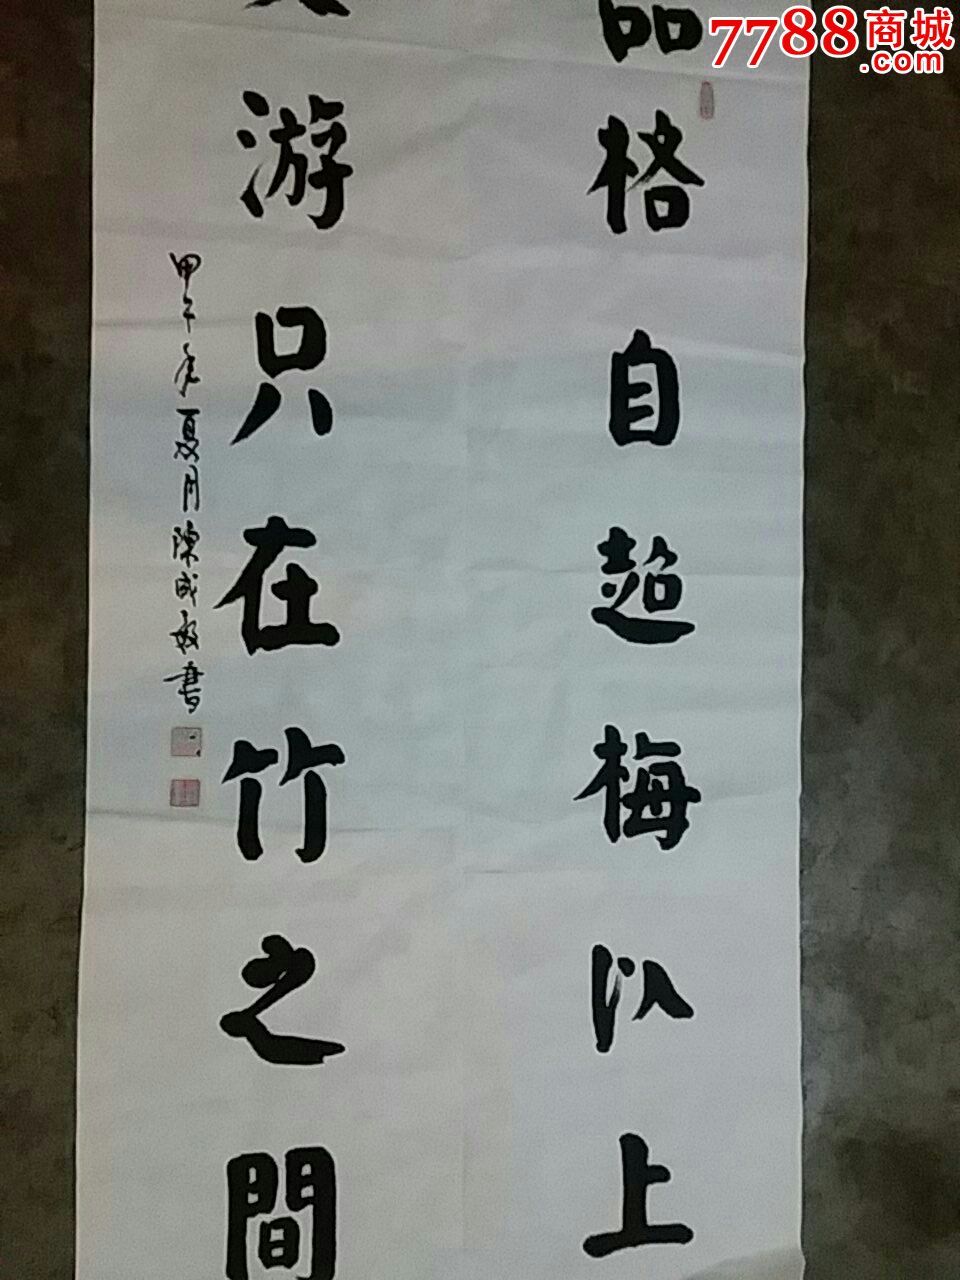 7788商城
.com
品格自超梅以上
游只在竹之間
甲午年夏月陳成敏書